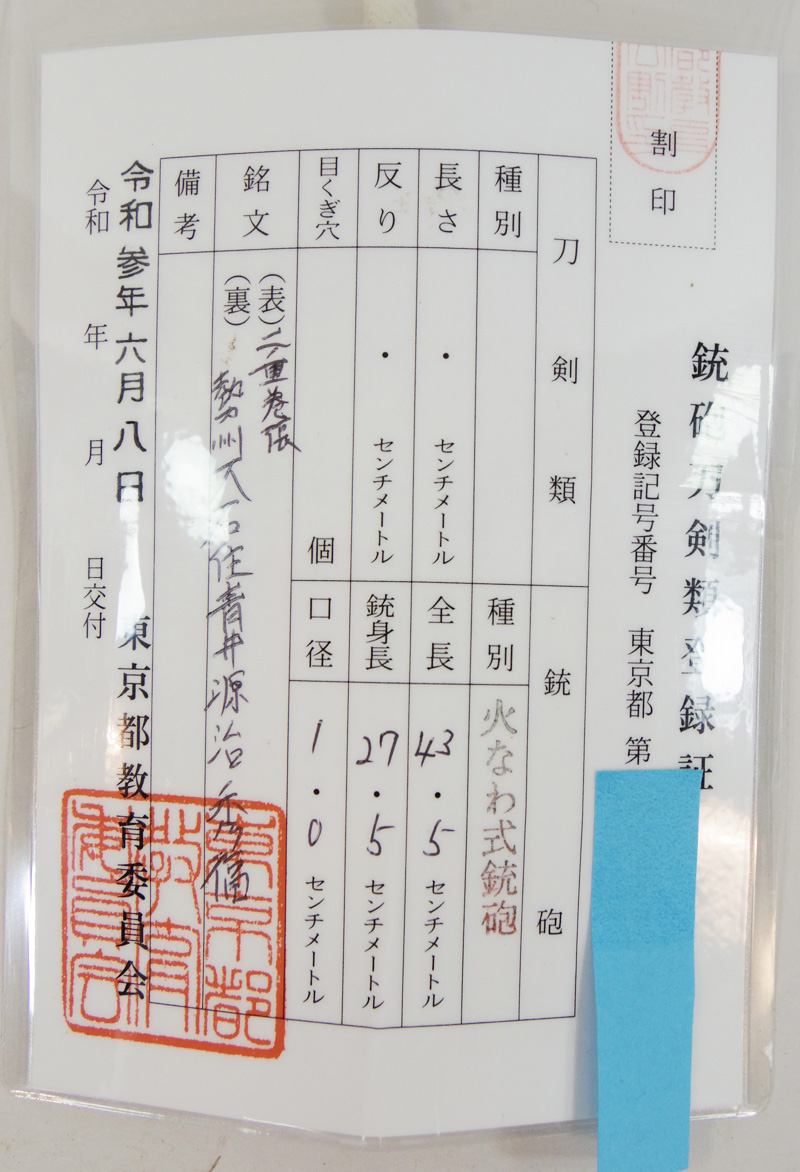 割印
銃砲刀剣類登録証
登録記号番号 東京都 第
刀剣類
銃砲
種別
種別 火なわ式銃砲
長さ ・ センチメートル
全長 43・5 センチメートル
反り ・ センチメートル
銃身長 27・5 センチメートル
目くぎ穴 個
口径 1・0 センチメートル
銘文 (表) 二重巻張
(裏) 勢州 住青井源治
備考
令和参年六月八日 東京都教育委員会
令和 年 月 日交付